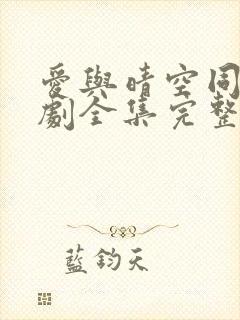 愛與晴空同
劇全集完整
藍鈞天